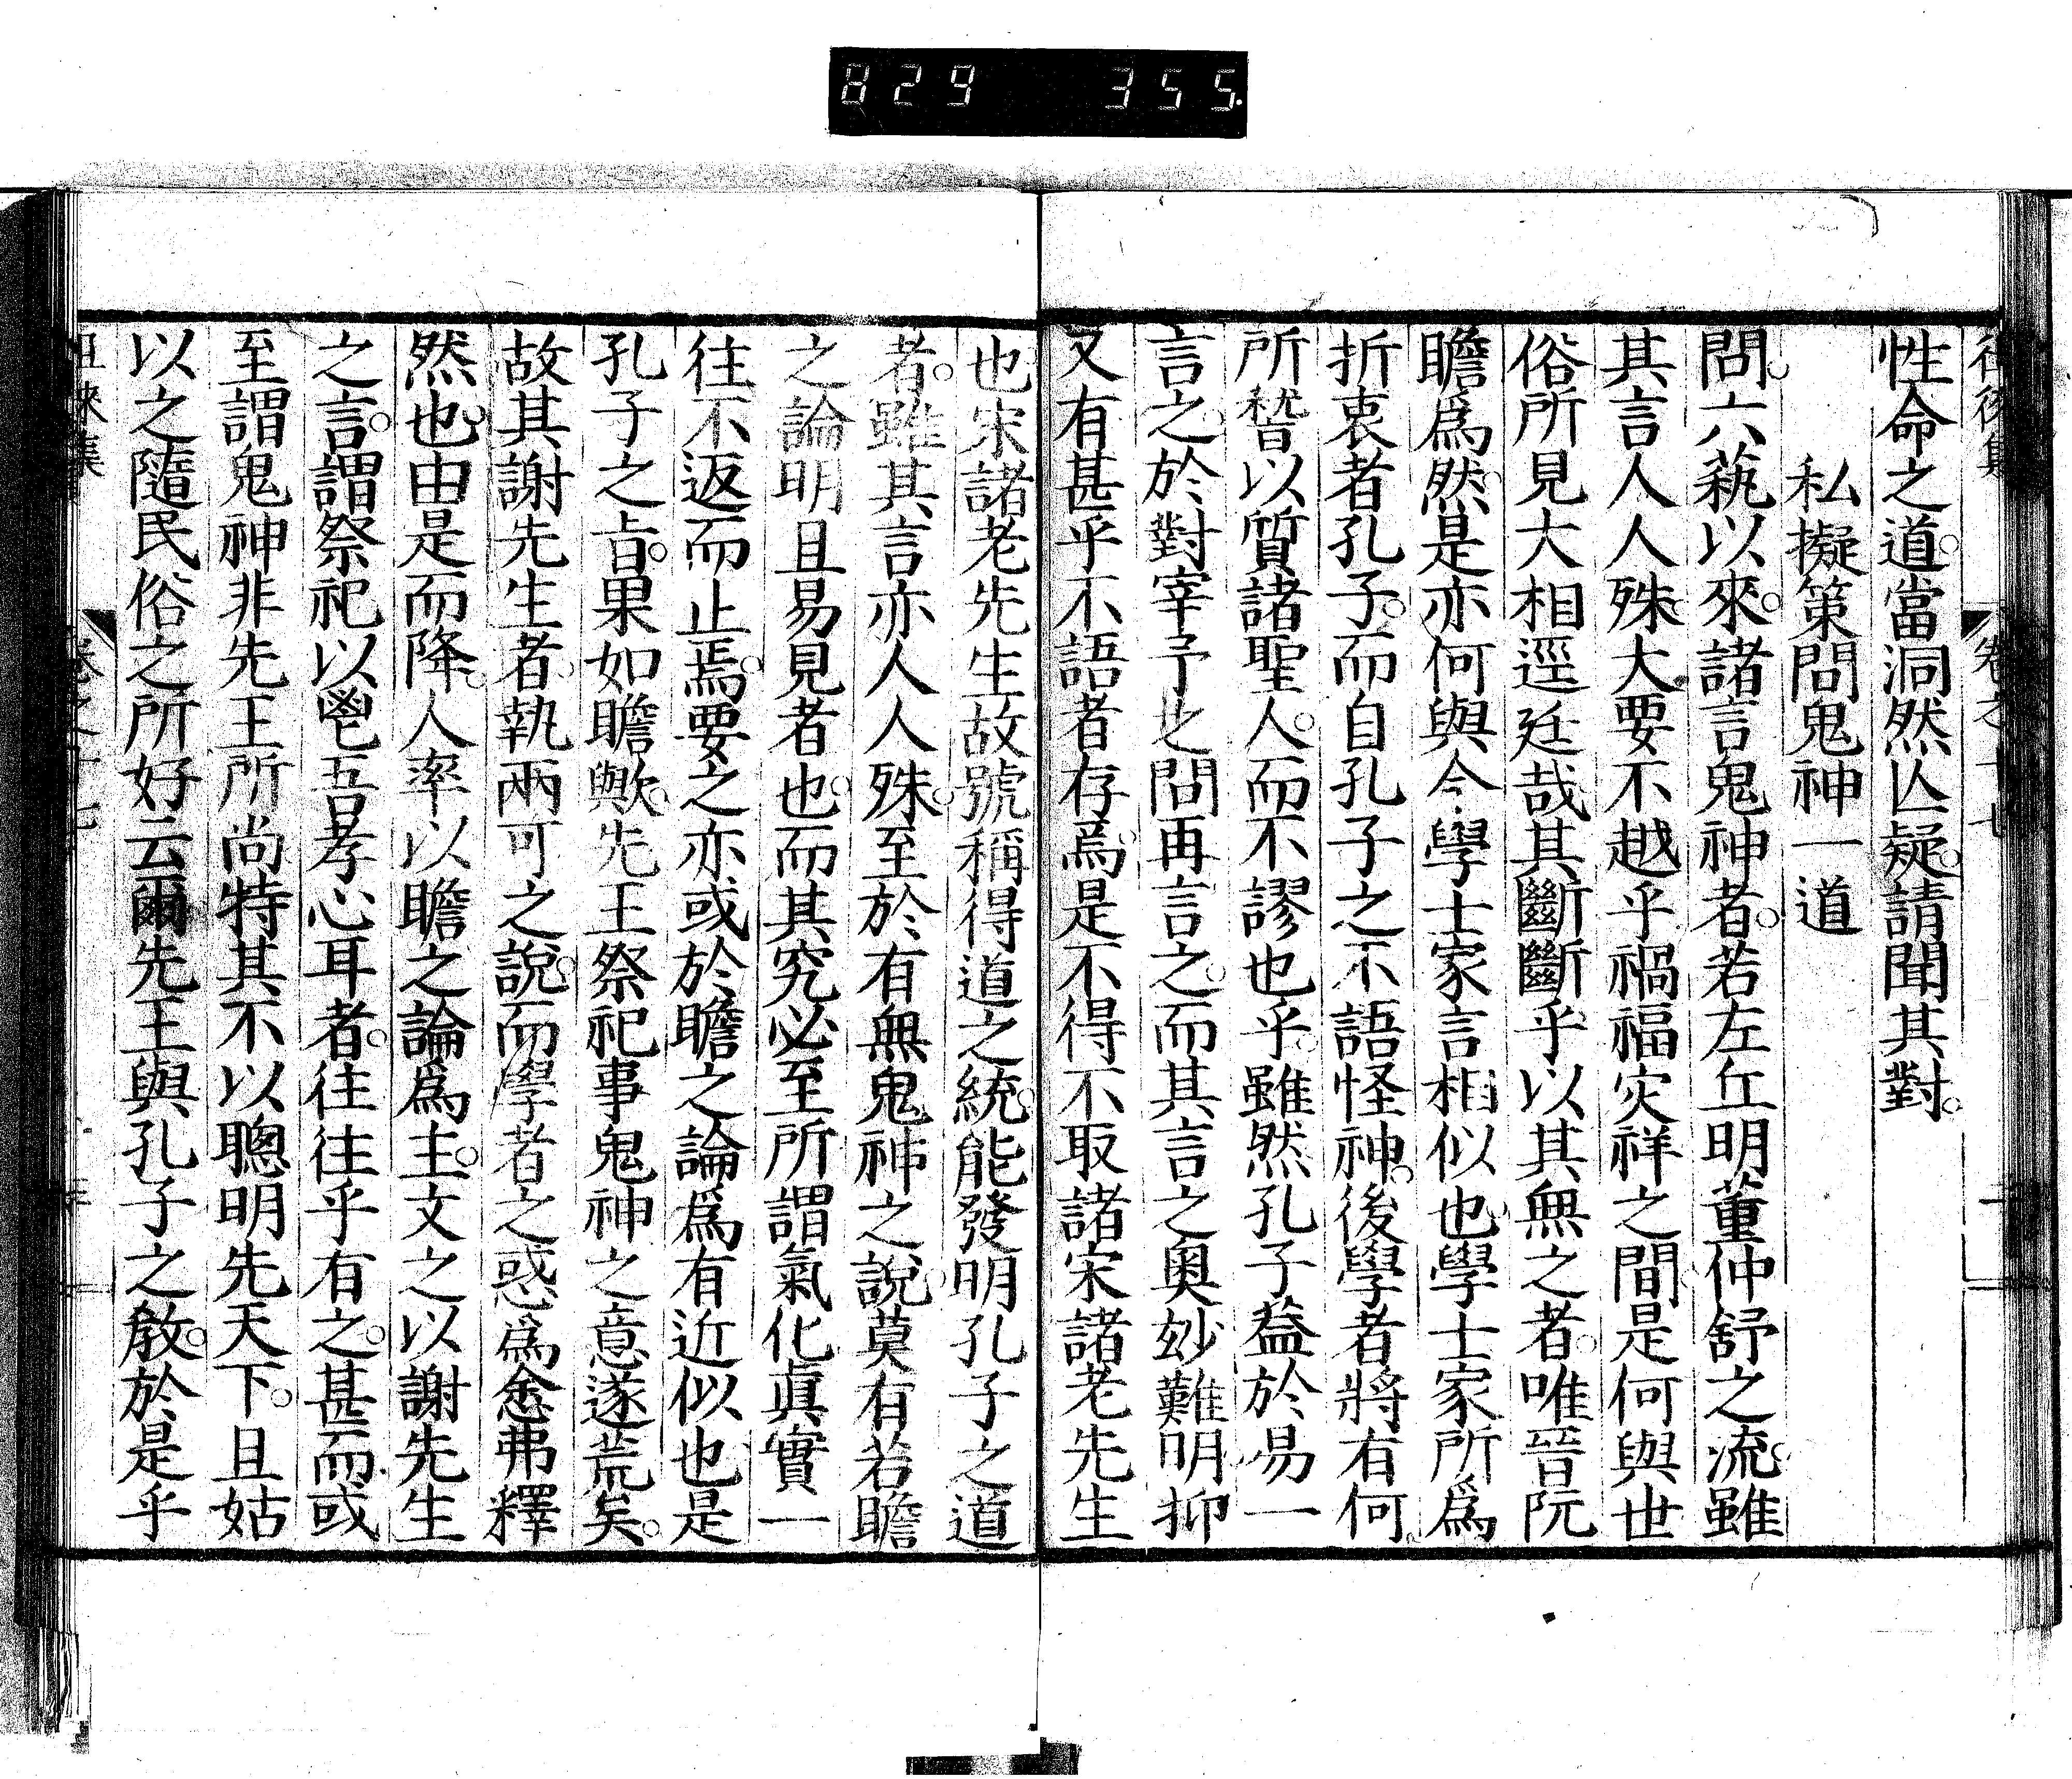 829 355.
性命之道。當洞然亾疑。請聞其對。
私擬策問鬼神一道
問。六蓺以來。諸言鬼神者。若左丘明董仲舒之流。雖
其言人人殊。大要不越乎禍福灾祥之間。是何與世
俗所見大相逕廷哉。其斷斷乎以其無之者。唯晉阮
瞻爲然。是亦何與今學士家言相似也。學士家所爲
折衷者孔子。而自孔子之不語怪神。後學者將有何
所嵆以質諸聖人。而不謬也乎。雖然孔子葢於易一
言之。於對宰予之問再言之。而其言之奧玅難明。抑
又有甚乎不語者存焉。是不得不取諸宋諸老先生
也。宋諸老先生故號稱得道之統。能發明孔子之道
者。雖其言亦人人殊。至於有無鬼神之說。莫有若瞻
之論明且易見者也。而其究必至所謂氣化眞實一
往不返而止焉。要之亦或於瞻之論爲有近似也。是
孔子之旨。果如瞻歟。先王祭祀事鬼神之意遂荒矣。
故其謝先生者。執兩可之說。而學者之惑爲愈弗釋
然也。由是而降。人率以瞻之論爲主。文之以謝先生
之言。謂祭祀以鬯吾孝心耳者。往往乎有之。甚而或
至謂鬼神非先王所尚。特其不以聰明先天下。且姑
以之隨民俗之所好云爾。先王與孔子之敎。於是乎
徂徠集
卷之十七